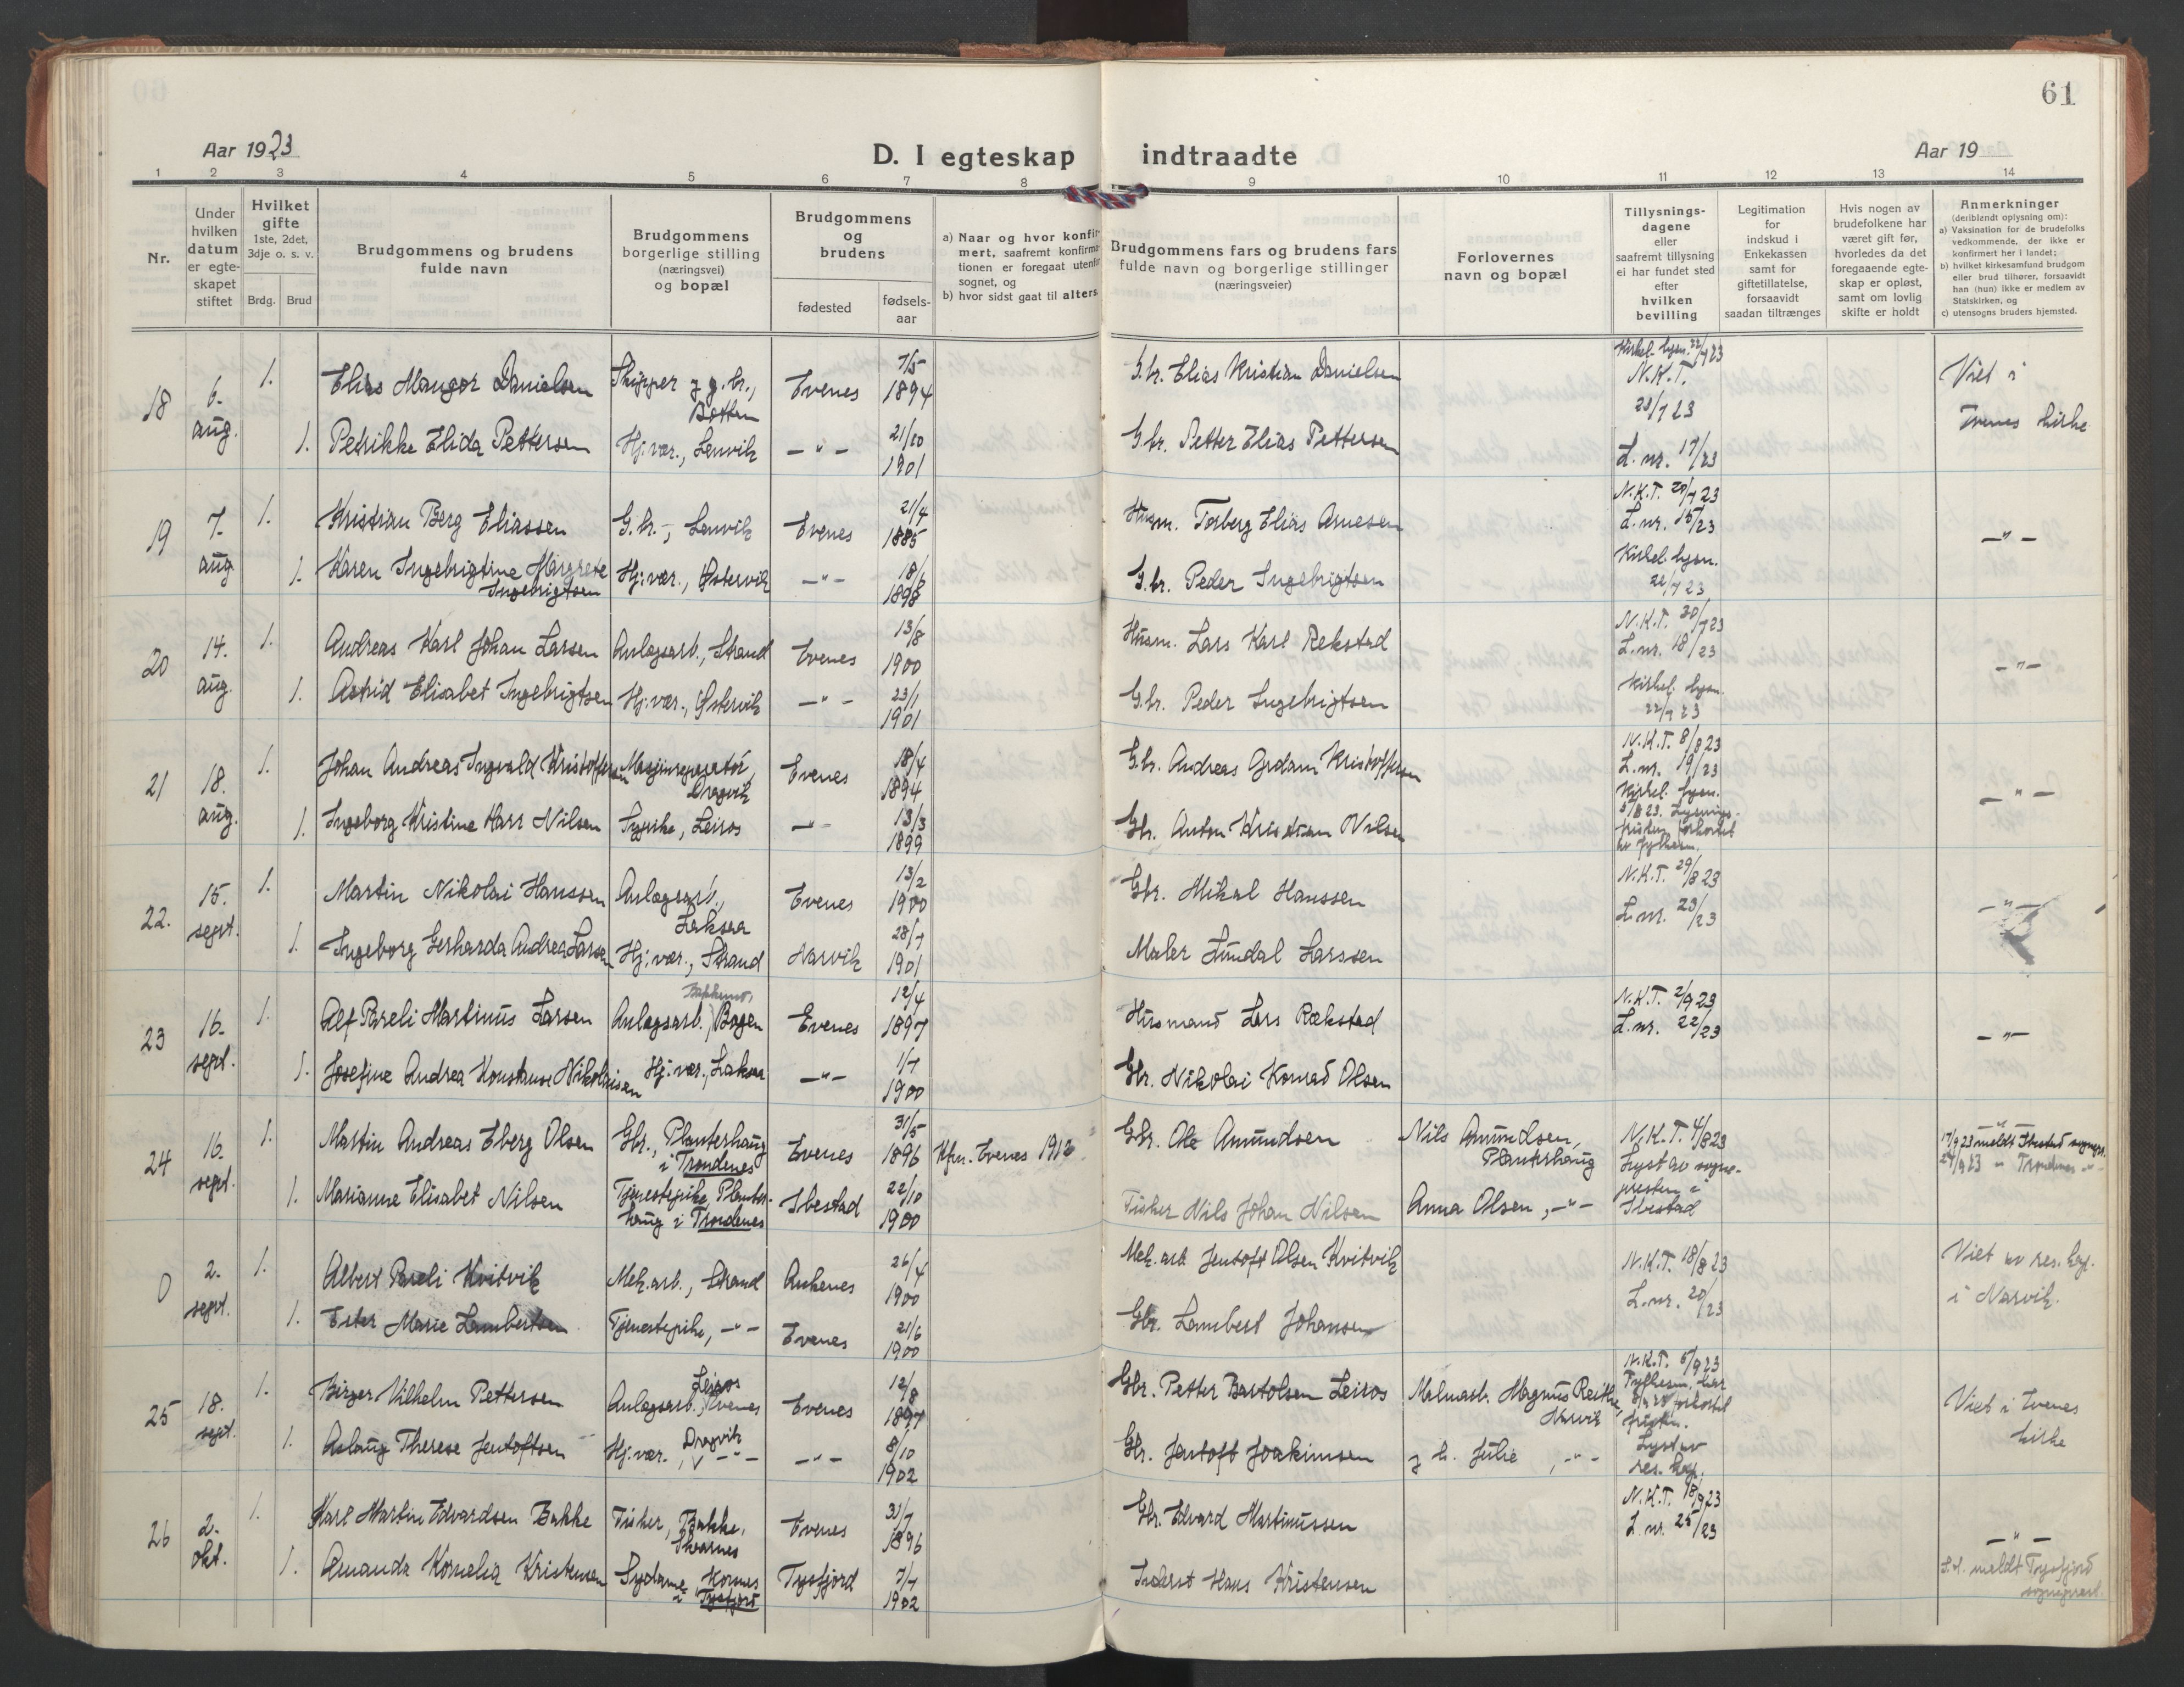 61
Aar 1923
D. I egteskap indtraadte
Aar 19
1 2 3 4 5 6 7 8 9 10 11 12 13 14
Nr.
Under
hvilken
datum
er egte-
skapet
stiftet
Hvilket
gifte
1ste, 2det,
3dje o. s. v.
Brdg. Brud
Brudgommens og brudens
fulde navn
Brudgommens
borgerlige stilling
(næringsvei)
og bopæl
Brudgommens
og
brudens
fødested
fødsels-
aar
a) Naar og hvor konfir-
mert, saafremt konfirma-
tionen er foregaat utenfor
sognet, og
b) hvor sidst gaat til alters.
Brudgommens fars og brudens fars
fulde navn og borgerlige stillinger
(næringsveier)
Forlovernes
navn og bopæl
Tillysnings-
dagene
eller
saafremt tillysning
ei har fundet sted
efter
hvilken
bevilling
Legitimation
for
indskud i
Enkekassen
samt for
giftetillatelse,
forsaavidt
saadan tiltrænges
Hvis nogen av
brudefolkene har
været gift før,
hvorledes da det
foregaaende egte-
skap er opløst,
samt om lovlig
skifte er holdt
Anmerkninger
(deriblandt oplysning om):
a) Vaksination for de brudefolks
vedkommende, der ikke er
konfirmert her i landet;
b) hvilket kirkesamfund brudgom
eller brud tilhører, forsaavidt
han (hun) ikke er medlem av
Statskirken, og
c) utensogns bruders hjemsted.
18
6.
aug.
1.
Elias Mangor Danielsen
Skipper g g.br.,
Botten
Evenes
7/5
1894
G.br. Elias Kristian Danielsen
Kirkel. lysn. 22/7 23
N.K.T.
23/7 23
Viet i
Evenes kirke
1.
Petrikke Elida Pettersen
Hj:vær., Lenvik
— " —
21/10
1901
G.br. Petter Elias Pettersen
L. nr. 17/23
19
7.
aug
1.
Kristian Berg Eliassen
G.br. -, Lenvik
Evenes
21/4
1885
Husm. Torberg Elias Arnesen
N.K.T. 20/7 23
L. nr. 15/23
— " —
1.
Karen Ingebrigtine Margrete
Ingebrigtsen
Hj:vær., Østervik
— " —
1898
G.br. Peder Ingebrigtsen
Kirkel. lysn.
22/7 23
20
14.
aug.
1.
Andreas Karl Johan Larsen
Anlagsarb., Strand
Evenes
13/8
1900
Husm. Lars Karl Rekstad
N.K.T. 30/7 23
L. nr. 18/23
— " —
1.
Astrid Elisabet Ingebrigtsen
Hj:vær., Østervik
— " —
23/1
1901
G.br. Peder Ingebrigtsen
Kirkel. lysn.
22/7 23
21
18.
aug.
1.
Johan Andreas Ingvald Kristoffersen
Maskinreparatør,
Dragvik
Evenes
18/4
1894
G.br. Andreas Ardam Kristoffersen
N.K.T. 8/8 23
L. nr. 19/23
Kirkel. lysn.
5/8 23. Lysnings-
fristen forkortet
av fylkesm.
— " —
1.
Ingeborg Kristine Karr Nilsen
Sypike, Leiros
— " —
13/3
1899
Gbr. Anton Kristian Nilsen
22.
15.
sept.
1.
Martin Nikolai Hanssen
Anlagsarb.,
Laksaa
Evenes
13/2
1900
Gbr. Mikal Hanssen
N.K.T. 29/8 23
L. nr. 23/23
— " —
1.
Ingeborg Gerharda Andrea Larsen
Hj:vær., Strand
Narvik
28/7
1901
Maler Lundal Larssen
23
16.
sept.
1.
Alf Pareli Martinus Larsen
Anlagsarb., Bogen
Evenes
12/4
1897
Husmand Lars Rækstad
N.K.T. 2/9 23
L. nr. 22/23
— " —
1.
Josefine Andrea Konstanse Nikolaisen
Hj:vær., Laksaa
— " —
1/7
1900
Gbr. Nikolai Konrad Olsen
24
16.
sept.
1.
Martin Andreas Eberg Olsen
Gbr., Planterhaug
i Trondenes
Evenes
31/5
1896
Kfm. Evenes 1912
Gbr. Ole Amundsen
Nils Amundsen,
Planterhaug
N.K.T. 4/8 23
Lyst av sogne-
presten i
Ibestad
— " —
17/9 23 meldt Ibestad sognepr.
24/9 23 " Trondenes — " —
1.
Marianne Elisabet Nilsen
Tjenestepike, Planter-
haug i Trondenes
Ibestad
22/10
1900
Fisker Nils Johan Nilsen
Anna Olsen, — " —
0
2.
sept.
1.
Albert Pareli Kvitvik
Mek.arb., Strand
Ankenes
26/4
1900
Mek. arb. Jentoft Olsen Kvitvik
N.K.T. 18/8 23
L. nr. 20/23
Viet av res. kap.
i Narvik.
1.
Ester Marie Lambertsen
Tjenestepike, — " —
Evenes
21/6
1900
Gbr. Lambert Johansen
25
18.
sept.
1.
Birger Vilhelm Pettersen
Leiros
Anlagsarb., Evenes
Evenes
12/8
1897
Gbr. Petter Bartolsen Leiros
Malmarb. Magnus
Narvik
N.K.T. 5/9 23
Fylkesm. har
forkortet
fristen.
Lyst av
res. kap.
Viet i Evenes
kirke
1.
Aslaug Therese Jentoftsen
Dragvik
Hj:vær., — " —
— " —
8/10
1902
Gbr. Jentoft Joakimsen
g h. Julie, — " —
26
2.
okt.
1.
Karl Martin Edvardsen Bakke
Fisker, Bakke,
Evenes
31/7
1896
Gbr. Edvard Martinussen
N.K.T. 18/9 23
L. nr. 25/23
— " —
1.
Amanda Kornelia Kristensen
Sydame, Korsnes
i Tysfjord
Tysfjord
7/7
1902
Inderst Hans Kristensen
S.d. meldt Tysfjord
sogneprest.